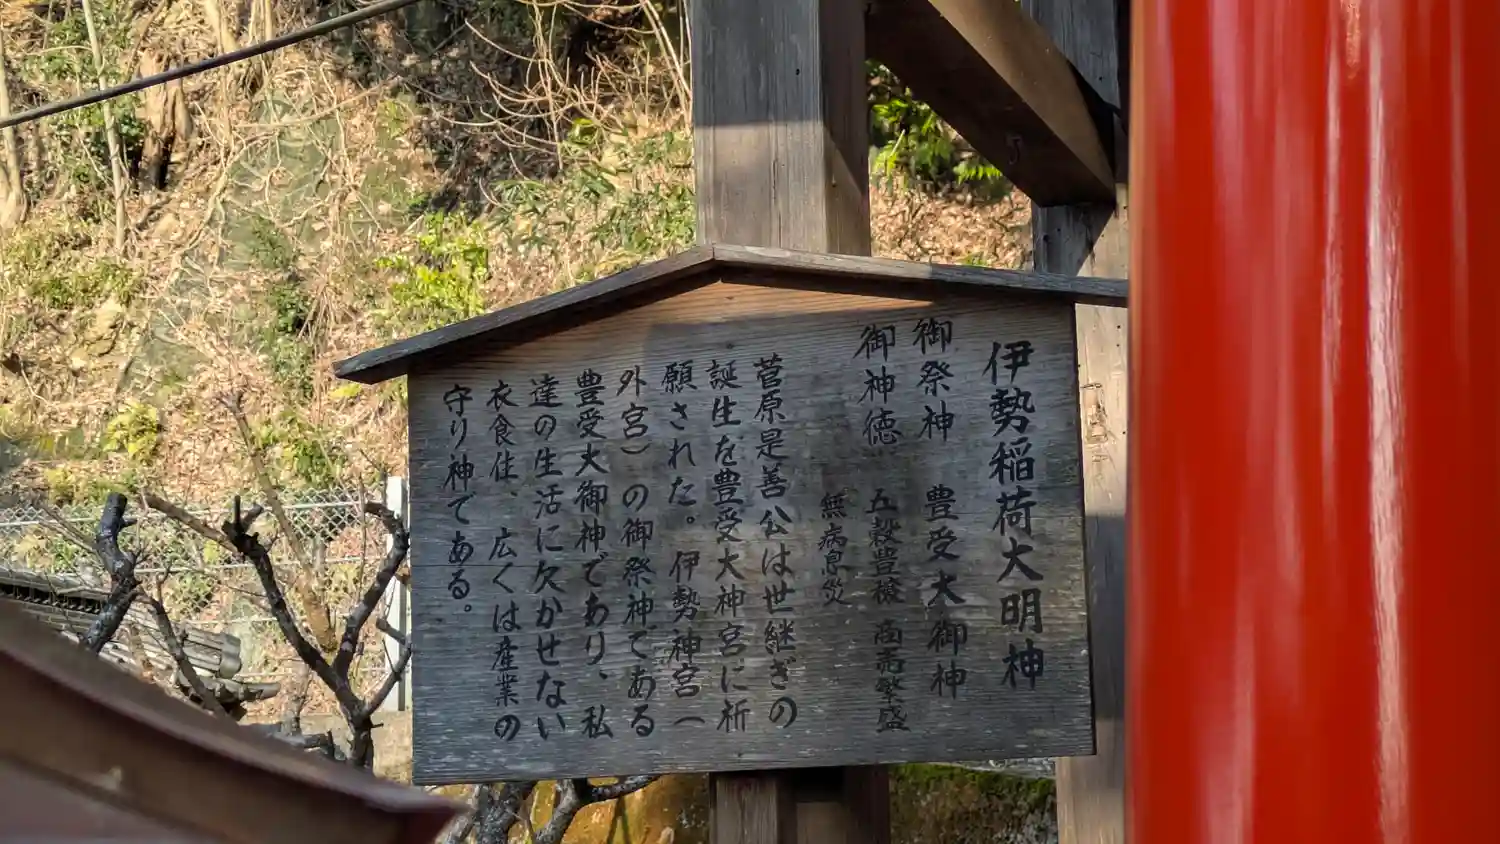 伊勢稲荷大明神
御祭神 豊受大御神
御神徳 五穀豊穣 商売繁盛
無病息災
菅原是善公は世継ぎの
誕生を豊受大神宮に祈
願された。伊勢神宮(
外宮)の御祭神である
豊受大御神であり、私
達の生活に欠かせない
衣食住、広くは産業の
守り神である。